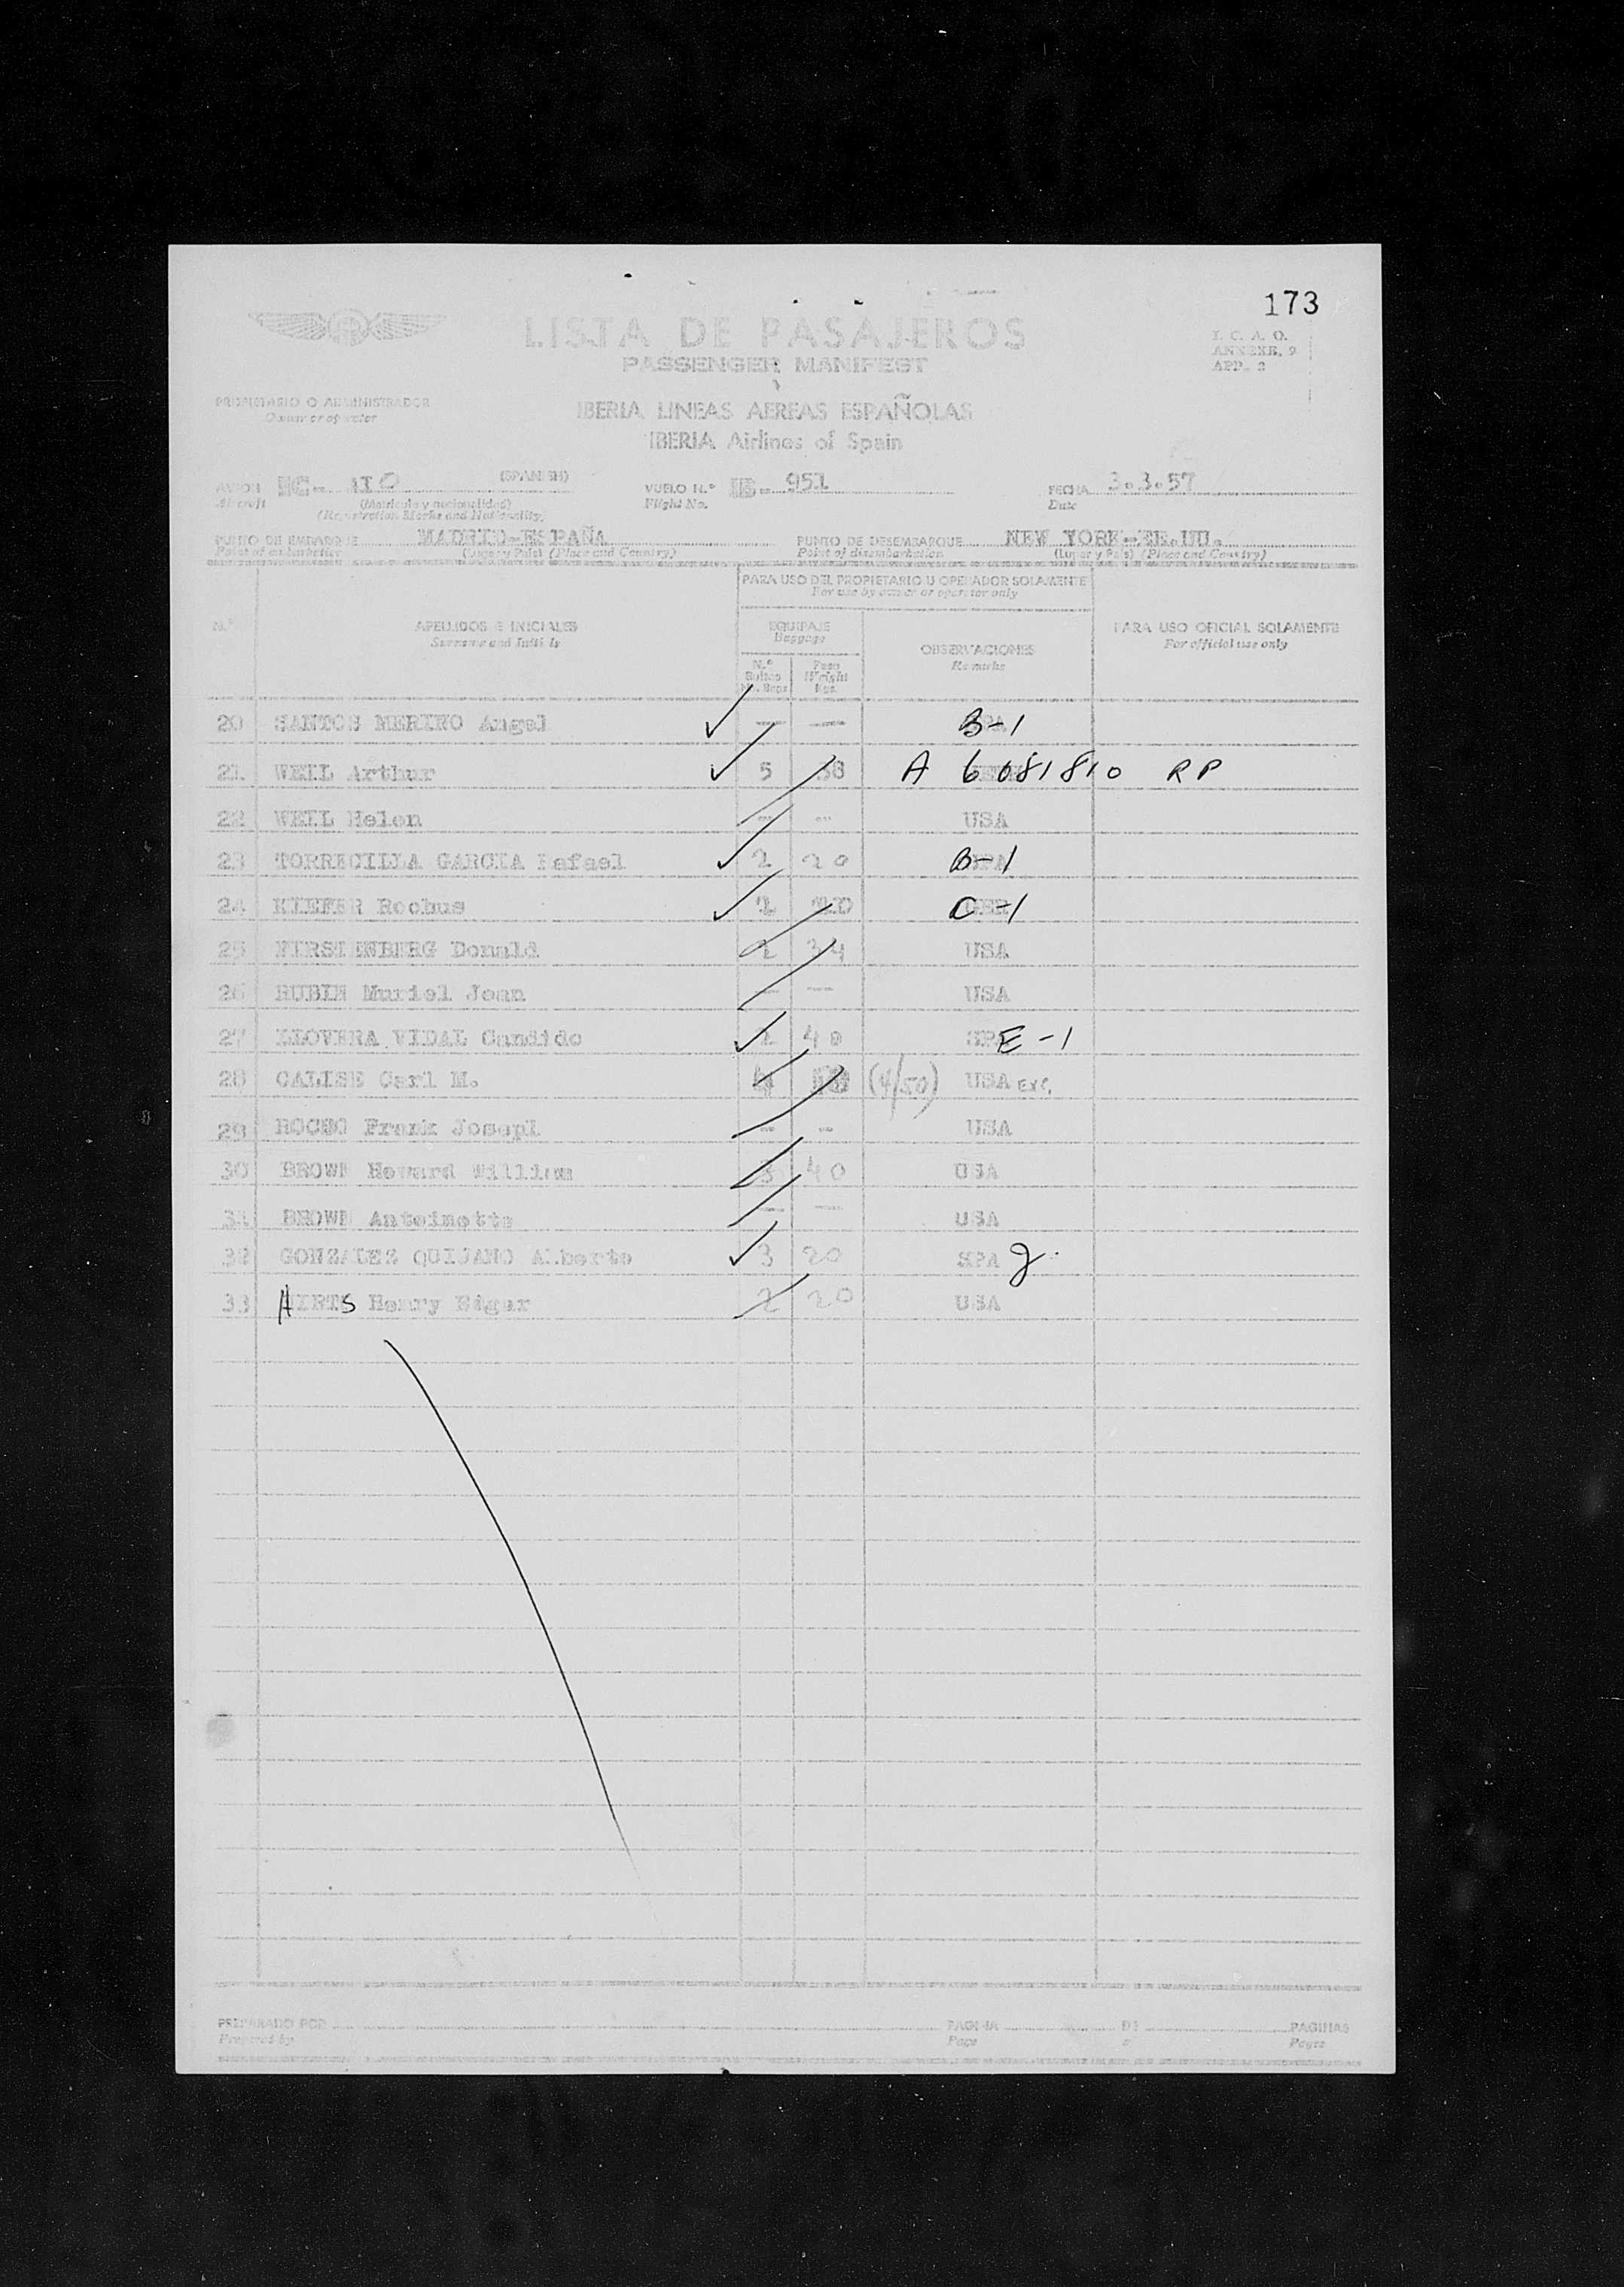 173
LISTA DE PASAJEROS
PASSENGER MANIFEST
I. C. A. O.
ANNEXE. 9
APP. 2
PROPIETARIO O ADMINISTRADOR
Owner or operator
IBERIA LINEAS AEREAS ESPAÑOLAS
IBERIA Airlines of Spain
AVION EC- (SPANISH) VUELO N.º IB- 951 FECHA 3.3.57
Aircraft (Matrícula y nacionalidad) Flight No. Date
(Registration Marks and Nationality)
PUNTO DE EMBARQUE MADRID-ESPAÑA PUNTO DE DESEMBARQUE NEW YORK-EE.UU.
Point of embarkation (Lugar y País) (Place and Country) Point of disembarkation (Lugar y País) (Place and Country)
PARA USO DEL PROPIETARIO U OPERADOR SOLAMENTE
For use by owner or operator only
N.º APELLIDOS E INICIALES EQUIPAJE OBSERVACIONES PARA USO OFICIAL SOLAMENTE
Surname and Initials Baggage Remarks For official use only
N.º Bultos Peso
No. Bags Weight Kgs.
20 SANTOS MERINO Angel — — B-1
21 WEIL Arthur 5 58 A 6 081 810 RP
22 WEIL Helen - - USA
23 TORRECILLA GARCIA Rafael 2 20 B-1
24 KIEFER Rochus C-1
25 Donald 2 34 USA
26 RUBIN Muriel Joan — — USA
27 LLOVERA VIDAL Candido 40 SPA E-1
28 CALISE Carl M. 4 (4/50) USA EXC.
29 Frank Joseph - - USA
30 BROWN Howard William 3 40 USA
31 BROWN Antoinette — — USA
32 GONZALEZ QUIJANO Alberto 3 20 SPA
33 Henry Edgar 2 20 USA
PREPARADO POR PAGINA DE PAGINAS
Prepared by Page Pages